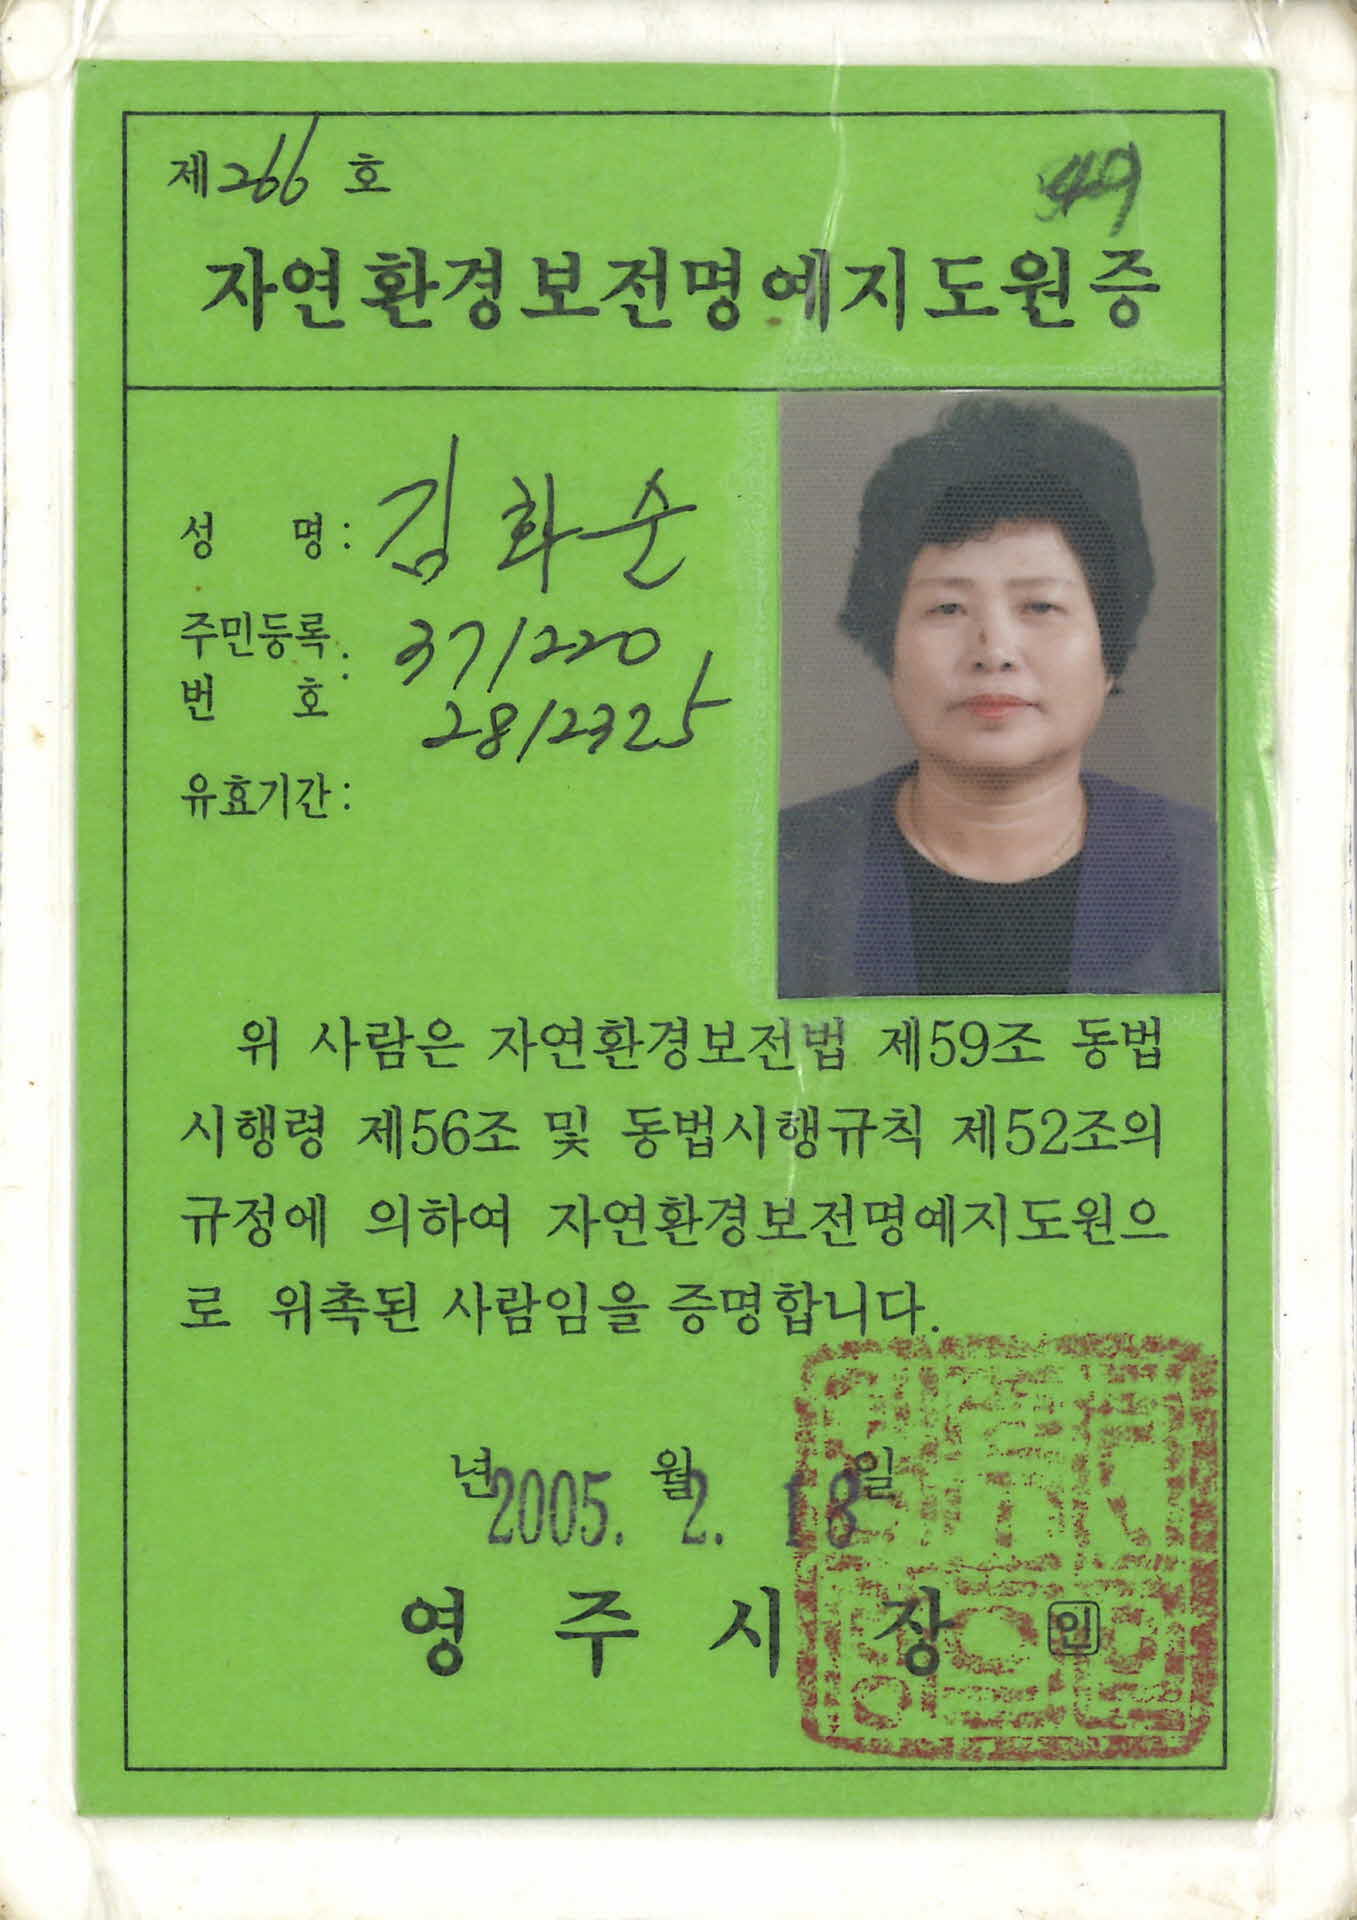 제266 호
자연환경보전명예지도원증
성 명: 김화순
주민등록 : 371220
번 호 2812325
유효기간:
위 사람은 자연환경보전법 제59조 동법
시행령 제56조 및 동법시행규칙 제52조의
규정에 의하여 자연환경보전명예지도원으
로 위촉된 사람임을 증명합니다.
년2005. 월2. 18일
영 주 시 장 인